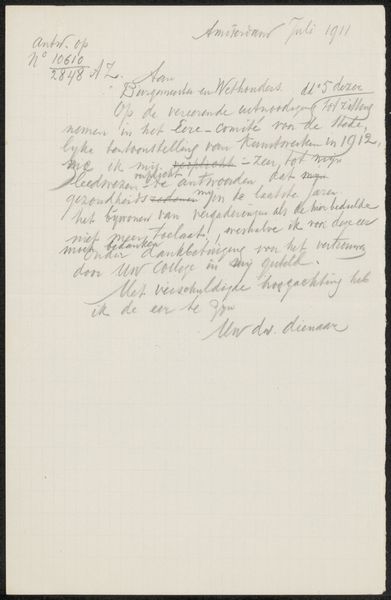 Amsterdam Juli 1911
Antw. op
No 10610
2848 A Z.
Aan
Burgemeester en Wethouders.
dd° 5 dezer
Op de vereerende uitnoodiging tot zitting
nemen in het Eere-comité voor de Stede-
lijke tentoonstelling van Kunstwerken in 1912,
zie ik mij verplicht zeer, tot mijn
leedwezen verplicht te antwoorden dat mijn
gezondheid mij in de laatste jaren
het bijwonen van vergaderingen als de hier bedoelde
niet meer toelaat, weshalve ik voor deze eer
moet bedanken
onder dankbetuiging van het vertrouwen
door Uw College in mij gesteld.
Met verschuldigde hoogachting heb
ik de eer te zijn
Uw dw. dienaar